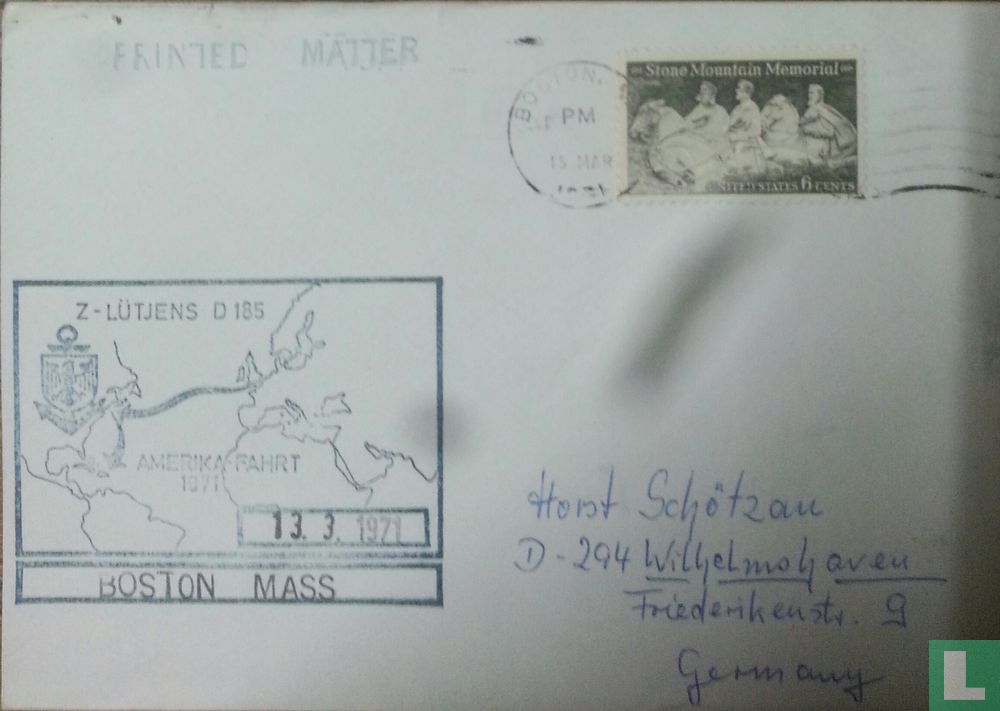 PRINTED MATTER
Stone Mountain Memorial
BOSTON,
PM
15 MAR
1971
UNITED STATES 6 CENTS
Z-LÜTJENS D 185
AMERIKA-FAHRT
1971
13. 3. 1971
BOSTON MASS
Horst Schötzau
D-294 Wilhelmshaven
Friederikenstr. 9
Germany
L